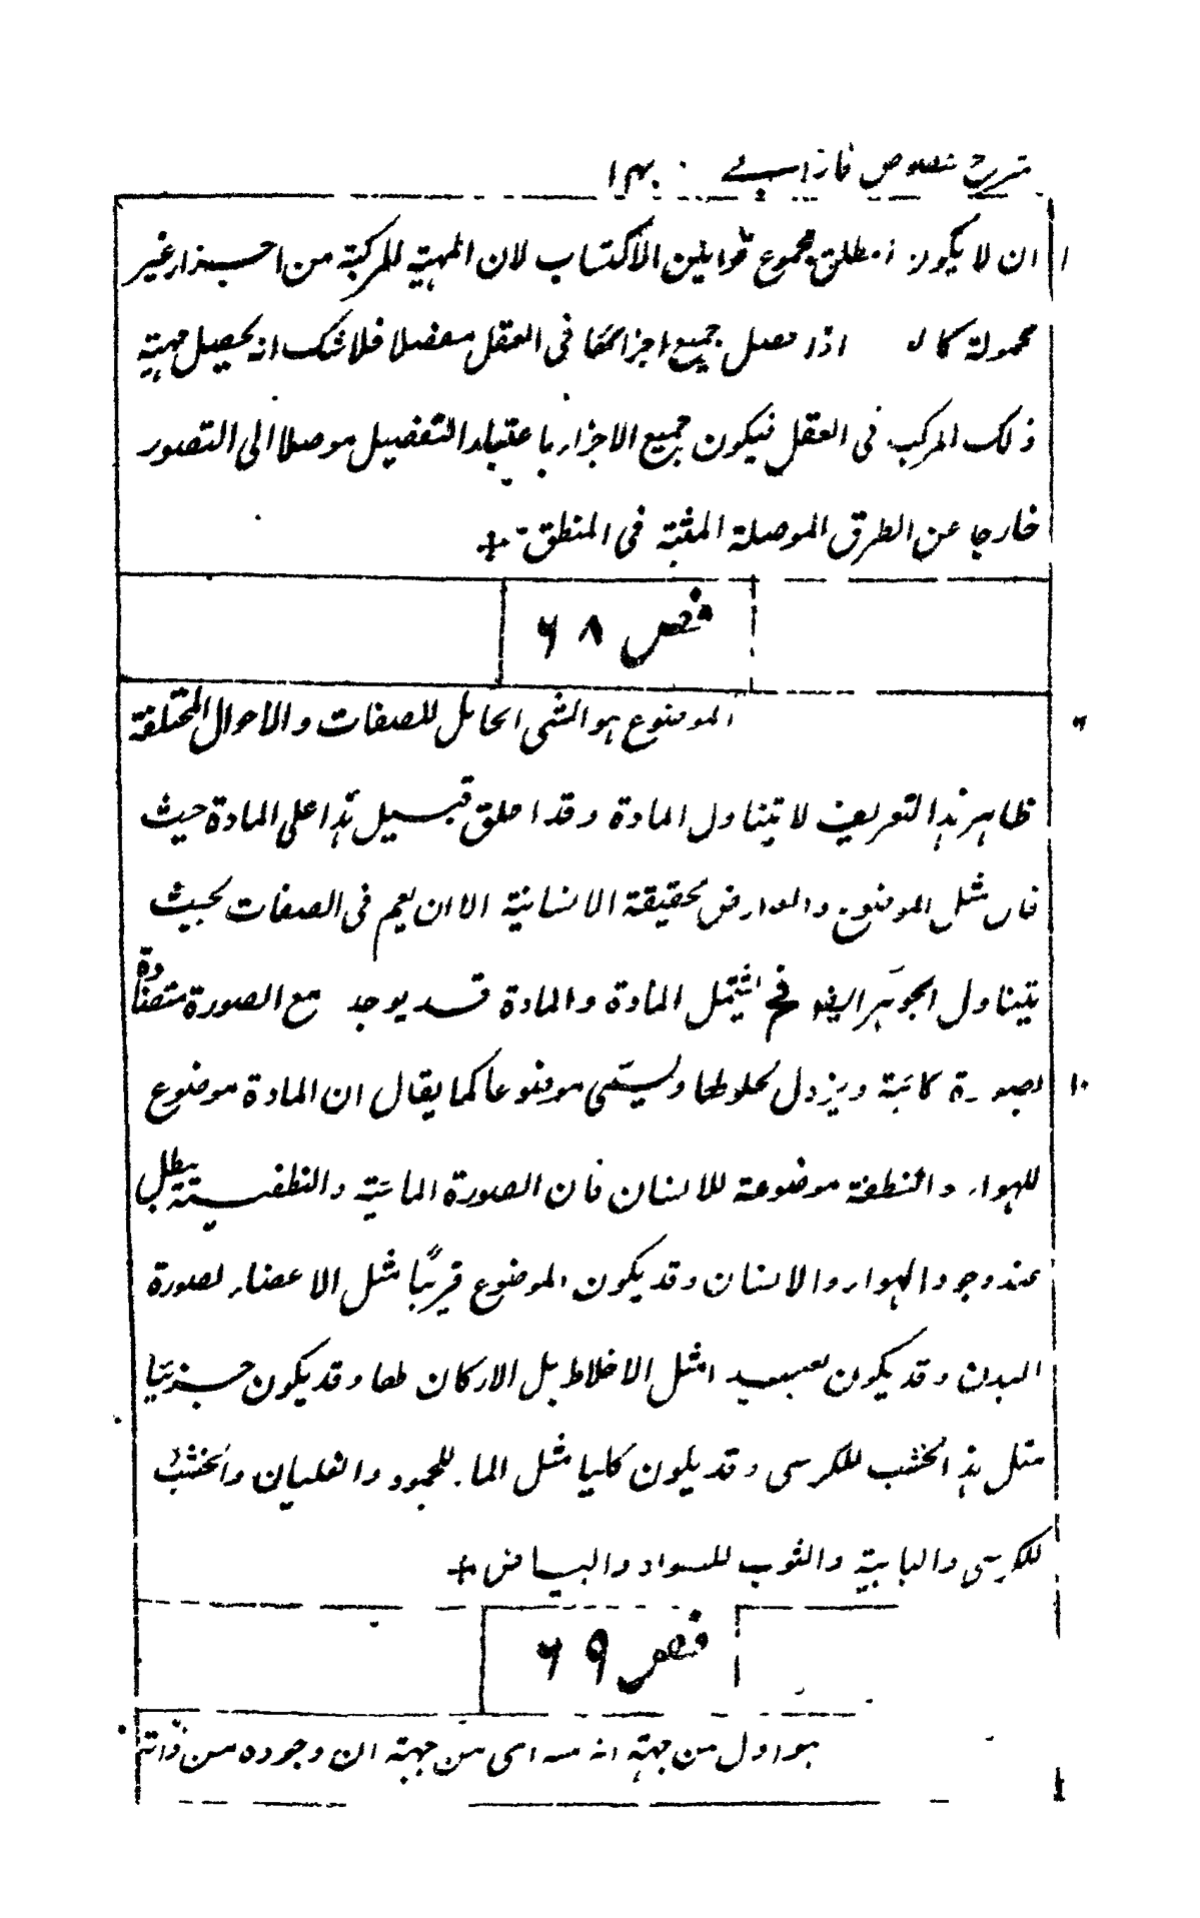 شرح فصوص فارابی
ان لا يكون مطلق مجموع قوانين الاكتساب لان المهية المركبة من اجزاء غير
محمولة اذا حصل جميع اجزائها فى العقل مفصلا فلا شك انه يحصل مهية
ذلك المركب فى العقل فيكون جميع الاجزاء باعتبار التفصيل موصلا الى التصور
خارجا عن الطرق الموصلة المثبتة فى المنطق +
فص ٦٨
الموضوع هو الشى الحامل للصفات والاحوال المختلفة
ظاهر هذا التعريف لا يتناول المادة وقد اطلق قبيل هذا على المادة حيث
قال مثل الموضوع والعوارض لحقيقة الانسانية الا ان يعم فى الصفات بحيث
يتناول الجوهر ايضا فح يشتمل المادة والمادة قد يوجد مع الصورة متضادة
لصورة كائنة ويزول ويسمى موضوعا كما يقال ان المادة موضوع
١٠
للهواء والنطفة موضوعة للانسان فان الصورة المائية والنطفية يبطل
عند وجود الهواء والانسان وقد يكون الموضوع قريبًا مثل الاعضاء لصورة
البدن وقد يكون بعيدا مثل الاخلاط بل الاركان لها وقد يكون جزئيا
مثل هذا الخشب للكرسى وقد يكون كليا مثل الماء للجمود والغليان والخشب
للكرسى والبابية والثوب للسواد والبياض +
فص ٦٩
هو اول من جهة انه منه اى من جهة ان وجوده من ذاته